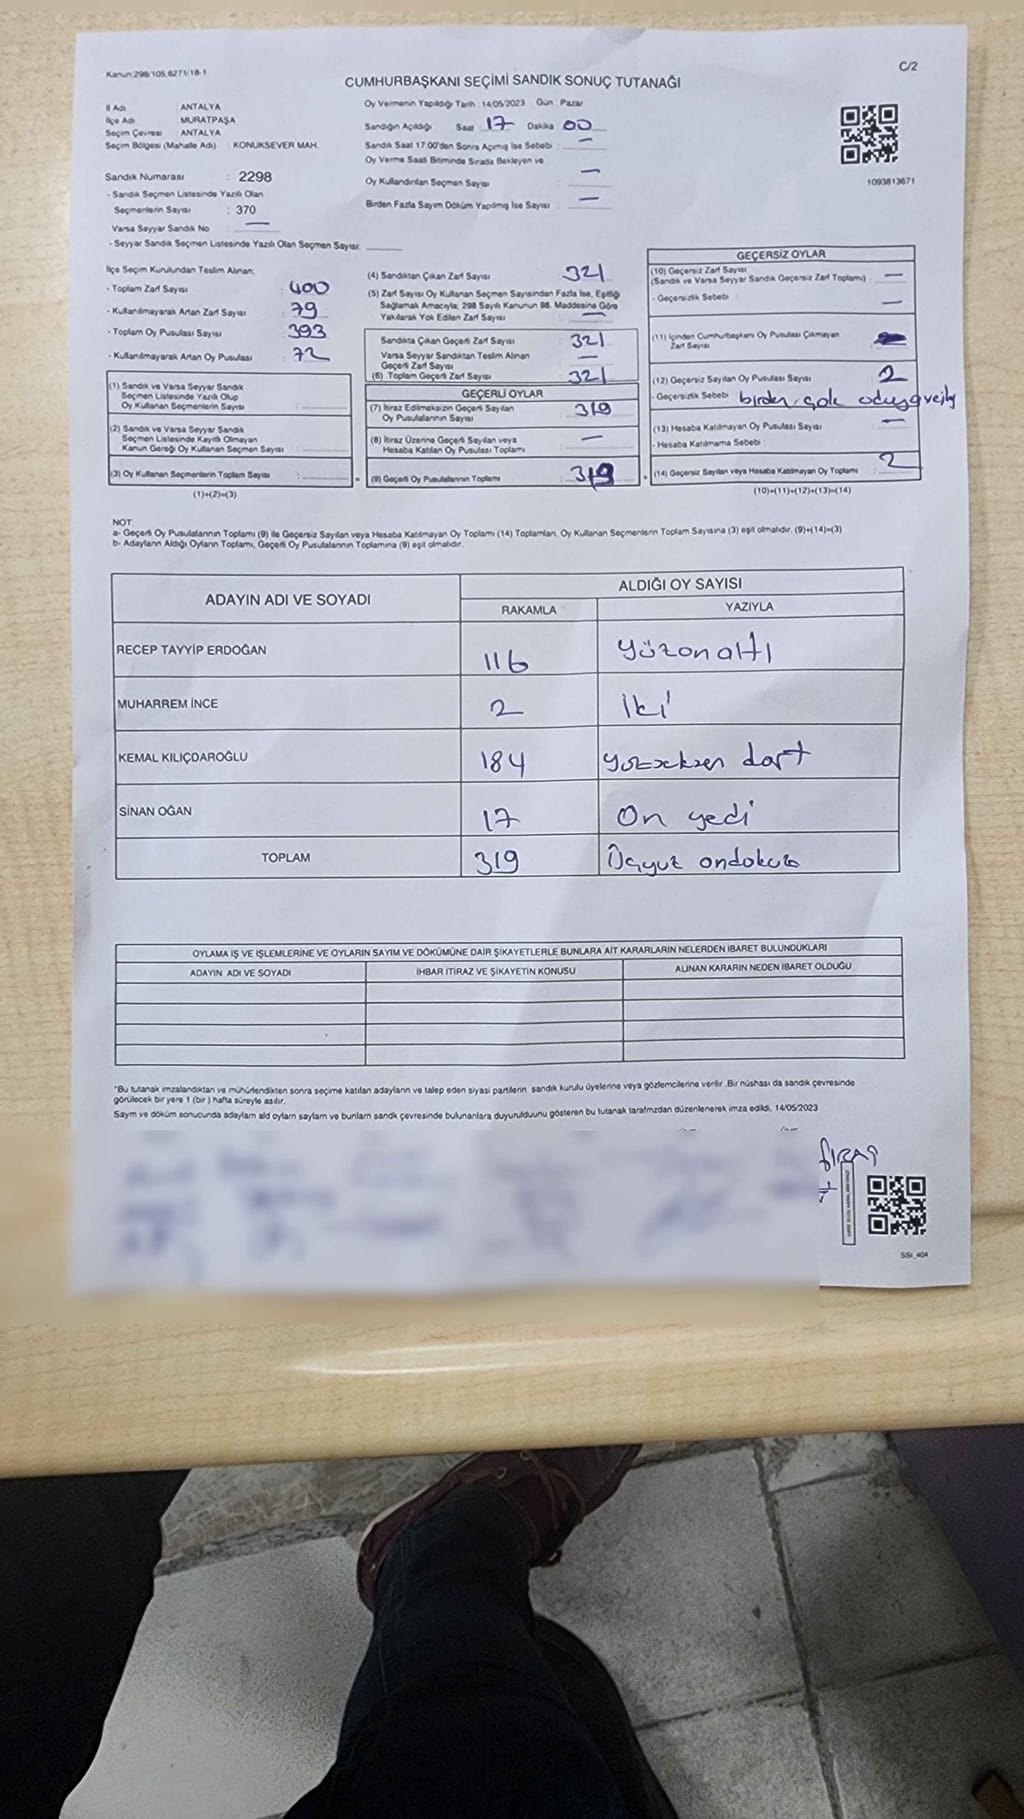 Kanun:298/105,6271/18-1
C/2
CUMHURBAŞKANI SEÇİMİ SANDIK SONUÇ TUTANAĞI
İl Adı : ANTALYA
İlçe Adı : MURATPAŞA
Seçim Çevresi : ANTALYA
Seçim Bölgesi (Mahalle Adı) : KONUKSEVER MAH.
Sandık Numarası : 2298
- Sandık Seçmen Listesinde Yazılı Olan
Seçmenlerin Sayısı : 370
Varsa Seyyar Sandık No —
- Seyyar Sandık Seçmen Listesinde Yazılı Olan Seçmen Sayısı:
Oy Vermenin Yapıldığı Tarih : 14/05/2023 Gün : Pazar
Sandığın Açıldığı Saat 17 Dakika 00
Sandık Saat 17.00'den Sonra Açımış İse Sebebi : —
Oy Verme Saati Bitiminde Sırada Bekleyen ve
Oy Kullandırılan Seçmen Sayısı —
Birden Fazla Sayım Döküm Yapılmış İse Sayısı : —
1093813671
İlçe Seçim Kurulundan Teslim Alınan;
- Toplam Zarf Sayısı : 400
- Kullanılmayarak Artan Zarf Sayısı : 79
- Toplam Oy Pusulası Sayısı : 393
- Kullanılmayarak Artan Oy Pusulası : 72
(1) Sandık ve Varsa Seyyar Sandık
Seçmen Listesinde Yazılı Olup
Oy Kullanan Seçmenlerin Sayısı :
(2) Sandık ve Varsa Seyyar Sandık
Seçmen Listesinde Kayıtlı Olmayan
Kanun Gereği Oy Kullanan Seçmen Sayısı :
(3) Oy Kullanan Seçmenlerin Toplam Sayısı :
(1)+(2)=(3)
(4) Sandıktan Çıkan Zarf Sayısı : 321
(5) Zarf Sayısı Oy Kullanan Seçmen Sayısından Fazla İse, Eşitliği
Sağlamak Amacıyla; 298 Sayılı Kanunun 98. Maddesine Göre
Yakılarak Yok Edilen Zarf Sayısı : —
Sandıkta Çıkan Geçerli Zarf Sayısı : 321
Varsa Seyyar Sandıktan Teslim Alınan
Geçerli Zarf Sayısı : —
(6) Toplam Geçerli Zarf Sayısı : 321
GEÇERLİ OYLAR
(7) İtiraz Edilmeksizin Geçerli Sayılan
Oy Pusulalarının Sayısı : 319
(8) İtiraz Üzerine Geçerli Sayılan veya
Hesaba Katılan Oy Pusulası Toplamı : —
(9) Geçerli Oy Pusulalarının Toplamı : 319
GEÇERSİZ OYLAR
(10) Geçersiz Zarf Sayısı
(Sandık ve Varsa Seyyar Sandık Geçersiz Zarf Toplamı) : —
- Geçersizlik Sebebi : —
(11) İçinden Cumhurbaşkanı Oy Pusulası Çıkmayan
Zarf Sayısı
(12) Geçersiz Sayılan Oy Pusulası Sayısı : 2
- Geçersizlik Sebebi birden çok
(13) Hesaba Katılmayan Oy Pusulası Sayısı : —
- Hesaba Katılmama Sebebi :
(14) Geçersiz Sayılan veya Hesaba Katılmayan Oy Toplamı : 2
(10)+(11)+(12)+(13)=(14)
NOT:
a- Geçerli Oy Pusulalarının Toplamı (9) ile Geçersiz Sayılan veya Hesaba Katılmayan Oy Toplamı (14) Toplamları, Oy Kullanan Seçmenlerin Toplam Sayısına (3) eşit olmalıdır. (9)+(14)=(3)
b- Adayların Aldığı Oyların Toplamı, Geçerli Oy Pusulalarının Toplamına (9) eşit olmalıdır.
ADAYIN ADI VE SOYADI
ALDIĞI OY SAYISI
RAKAMLA YAZIYLA
RECEP TAYYİP ERDOĞAN 116 yüzonaltı
MUHARREM İNCE 2 iki
KEMAL KILIÇDAROĞLU 184 yüzseksen dört
SİNAN OĞAN 17 On yedi
TOPLAM 319 Üçyüz ondokuz
OYLAMA İŞ VE İŞLEMLERİNE VE OYLARIN SAYIM VE DÖKÜMÜNE DAİR ŞİKAYETLERLE BUNLARA AİT KARARLARIN NELERDEN İBARET BULUNDUKLARI
ADAYIN ADI VE SOYADI İHBAR İTİRAZ VE ŞİKAYETİN KONUSU ALINAN KARARIN NEDEN İBARET OLDUĞU
*Bu tutanak imzalandıktan ve mühürlendikten sonra seçime katılan adayların ve talep eden siyasi partilerin sandık kurulu üyelerine veya gözlemcilerine verilir .Bir nüshası da sandık çevresinde
görülecek bir yere 1 (bir ) hafta süreyle asılır.
Sayım ve döküm sonucunda adayların ald oyların sayların ve bunların sandk çevresinde bulunanlara duyurulduunu gösteren bu tutanak tarafmzdan düzenlenerek imza edildi, 14/05/2023
SSI_404